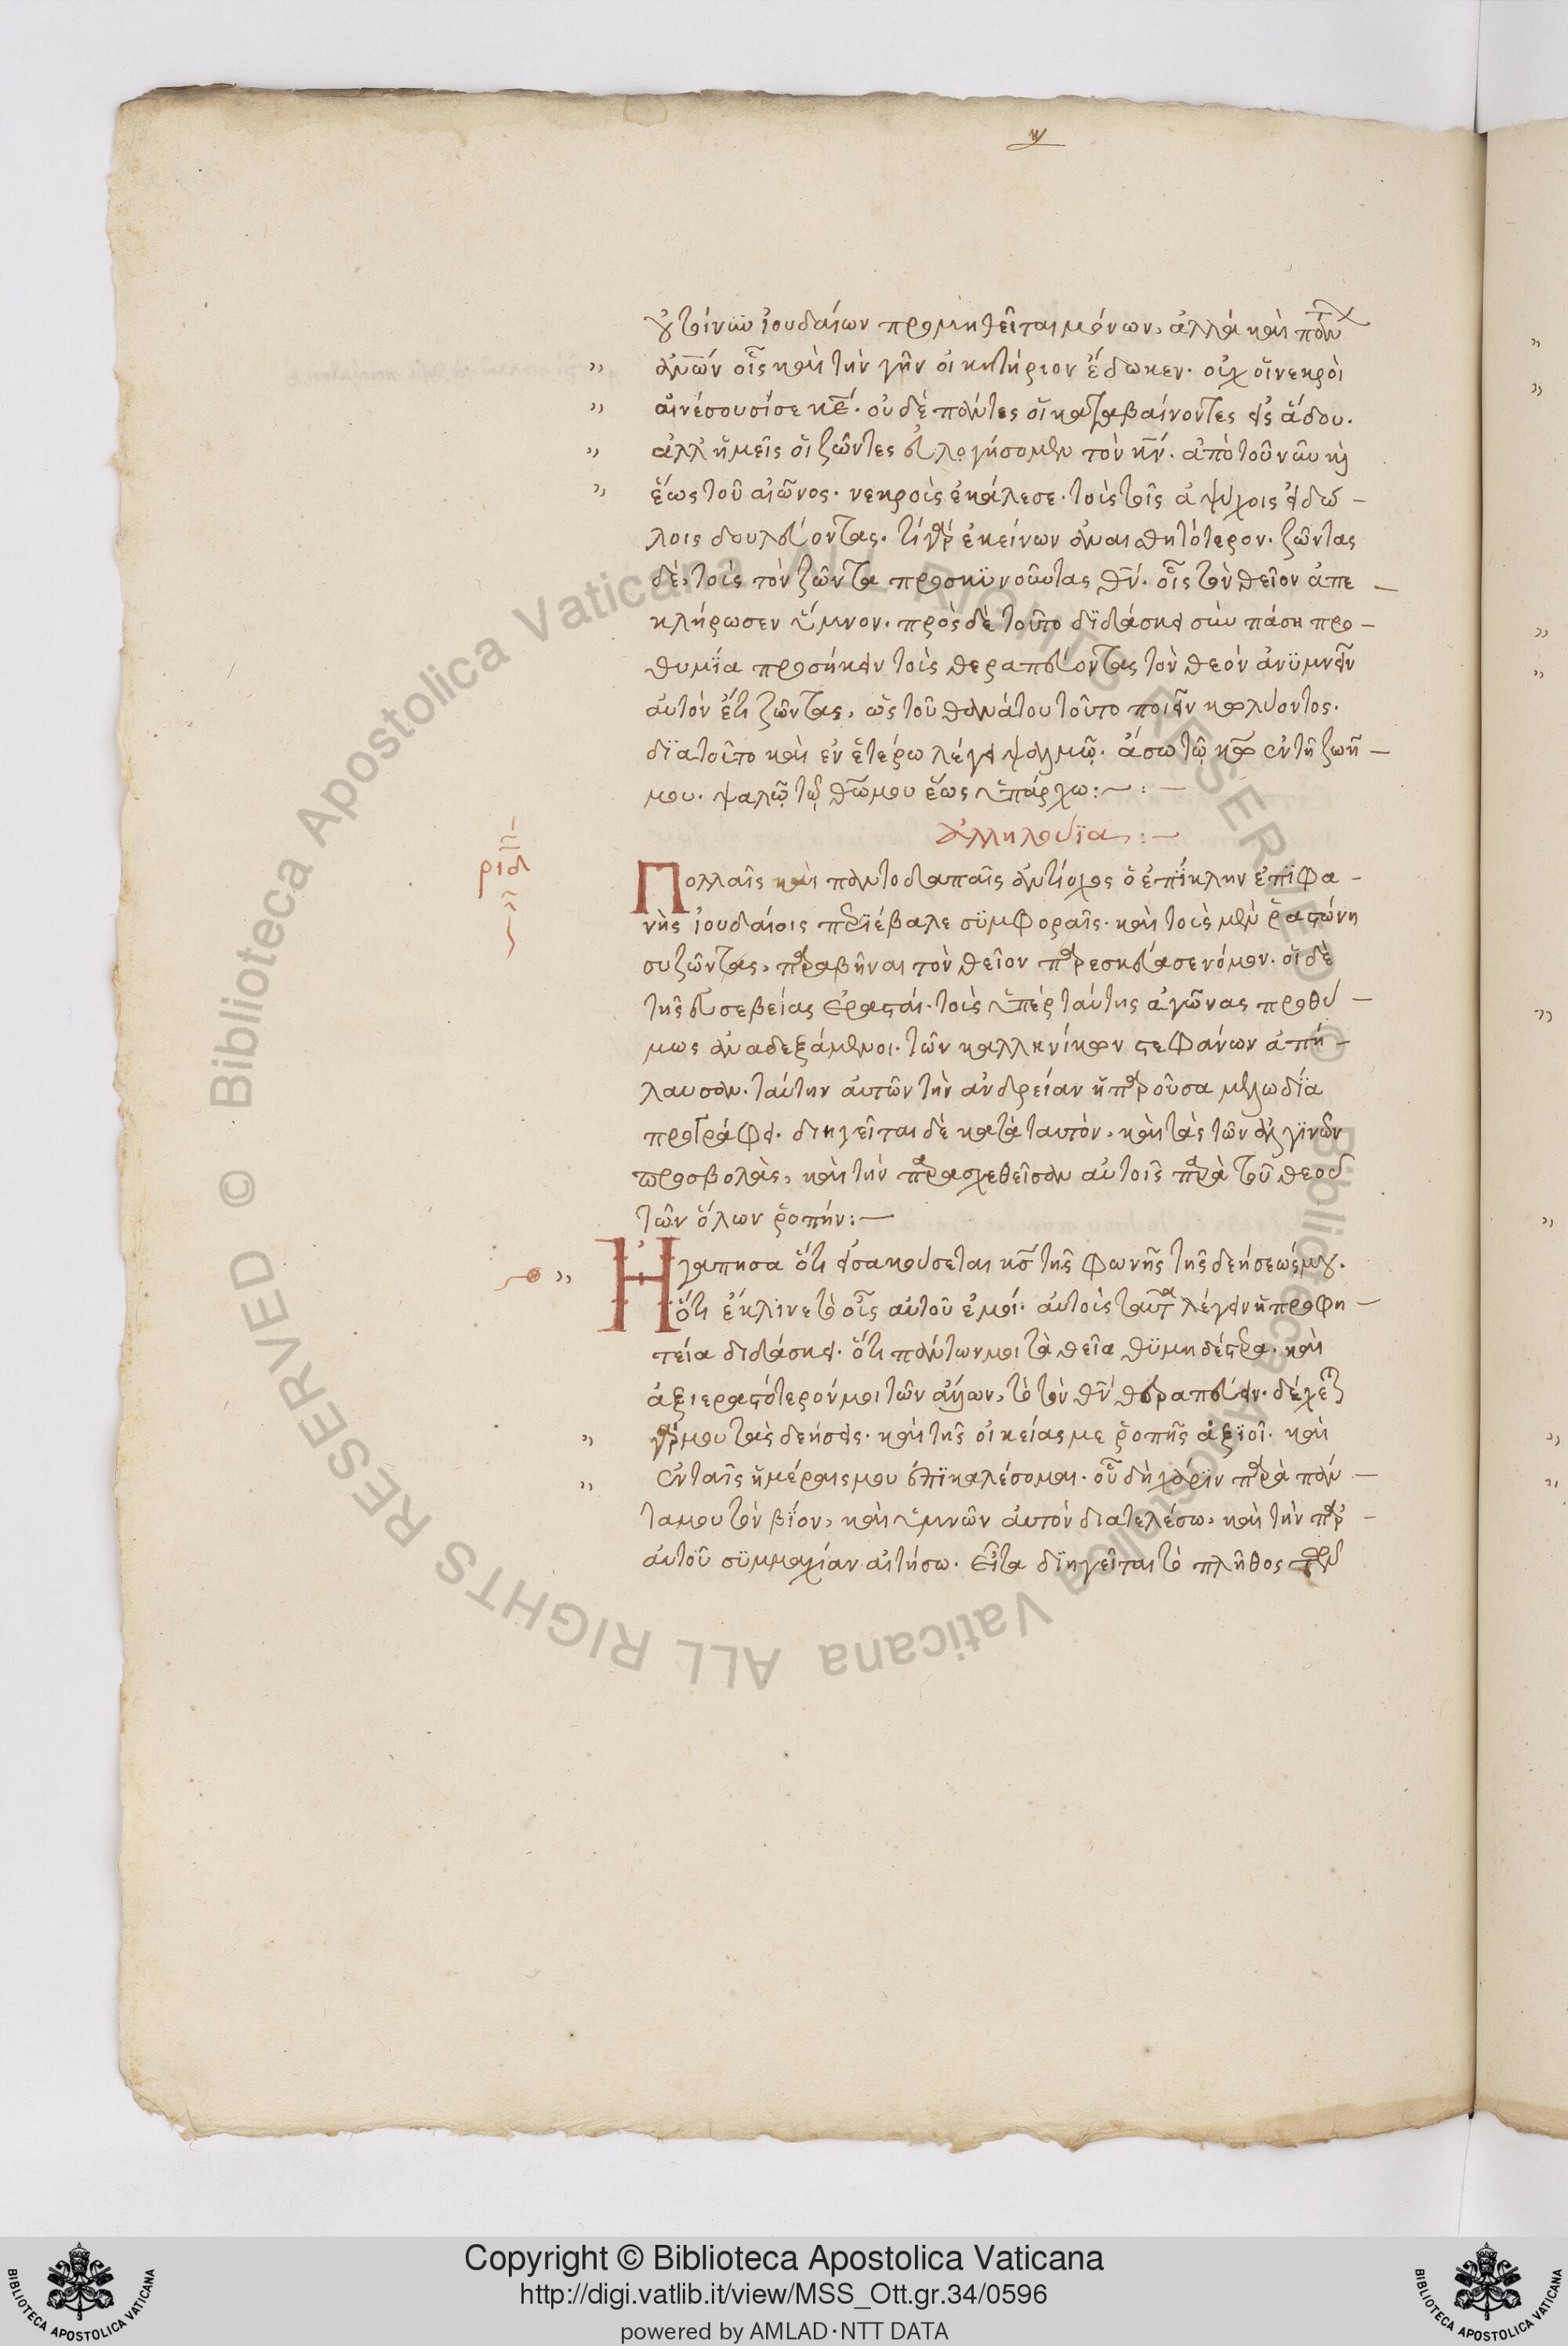 οὐ τοίνυν ἰουδαίων προμηθεῖται μόνων, ἀλλὰ καὶ πάντων
ἀνῶν οἷς καὶ τὴν γῆν οἰκητήριον ἔδωκεν. οὐχ οἵ νεκροὶ
αἰνέσουσί σε κε̄. οὐδὲ πάντες οἵ καταβαίνοντες εἰς ἅδου.
ἀλλ' ἡμεῖς οἵ ζῶντες εὐλογήσομεν τὸν κν̄. ἀπὸ τοῦ νῦν καὶ
ἕως τοῦ αἰῶνος. νεκροὺς ἐκάλεσε. τοὺς τοῖς ἀψύχοις εἰδώ –
λοις δουλεύοντας. τί γὰρ ἐκείνων ἀναισθητότερον. ζῶντας
δὲ, τοὺς τὸν ζῶντα προσκϋνοῦντας θν̄. οἷς τὸν θεῖον ἀπε –
κλήρωσεν ὕμνον. πρὸς δὲ τοῦτο δϊδάσκει σὺν πάση προ –
θυμΐα προσήκειν τοὺς θεραπεύοντας τὸν θεὸν ἀνϋμνεῖν
αὐτὸν ἔτι ζῶντας, ὡς τοῦ θανάτου τοῦτο ποιεῖν κωλύοντος.
δϊατοῦτο καὶ ἐν ἑτέρω λέγει ψαλμῷ. ἄσω τῷ κω̄ ἐν τῆ ζωῆ –
μου. ψαλῶ τῷ θῶ μου ἕως ὑπάρχω:~ : –
ἀλληλούϊα :–
ριδ
Πολλαῖς καὶ παντοδαπαῖς ἀντίοχος ὁ ἐπΐκλην ἐπϊφα –
νὴς ἰουδαίοις περϊέβαλε σϋμφοραῖς. καὶ τοὺς μὲν ῥαστώνη
συζῶντας, παραβῆναι τὸν θεῖον παρεσκεύασε νόμον. οἵ δὲ
τῆς εὐσεβείας ἐρασταὶ. τοὺς ὑπὲρ ταύτης ἀγῶνας προθύ –
μως ἀναδεξάμενοι. τῶν καλλινίκων στεφάνων ἀπή –
λαυσαν. ταύτην αὐτῶν τὴν ἀνδρείαν ἡ παροῦσα μελωδΐα
προγράφει. διηγεῖται δὲ κατὰ ταυτὸν, καὶ τὰς τῶν ἀλγϊνῶν
προσβολὰς, καὶ τὴν παρασχεθεῖσαν αὐτοῖς παρὰ τοῦ θεοῦ
τῶν ὅλων ῥοπήν: –
Ηγαπησα ὅτι εἰσακούσεται κς̄ τῆς φωνῆς τῆς δεήσεώς μου.
ὅτι ἔκλϊνε τὸ οὖς αὐτοῦ ἐμοί. αὐτοὺς ταῦτα λέγειν ἡ προφη –
τεία διδάσκει. ὅτι πάντων μοι τὰ θεῖα θϋμηδέστερα. καὶ
ἀξιεραστότερόν μοι τῶν ἄλλων, τὸ τὸν θν̄ θεραπεύειν. δέχεται
γάρ μου τὰς δεήσεις. καὶ τῆς οἰκείας με ῥοπῆς ἀξϊοῖ. καὶ
ἐν ταῖς ἡμέραις μου ἐπϊκαλέσομαι. οὗ δὴ χάριν παρὰ πάν –
τα μου τὸν βΐον, καὶ ὑμνῶν αὐτὸν διατελέσω, καὶ τὴν παρ –
αὐτοῦ σϋμμαχίαν αἰτήσω. εἶτα δϊηγεῖται τὸ πλῆθος τῶν
© Biblioteca Apostolica Vaticana ALL RIGHTS RESERVED © Biblioteca Apostolica Vaticana ALL RIGHTS RESERVED
Copyright © Biblioteca Apostolica Vaticana
http://digi.vatlib.it/view/MSS_Ott.gr.34/0596
powered by AMLAD·NTT DATA
BIBLIOTECA APOSTOLICA VATICANA
BIBLIOTECA APOSTOLICA VATICANA